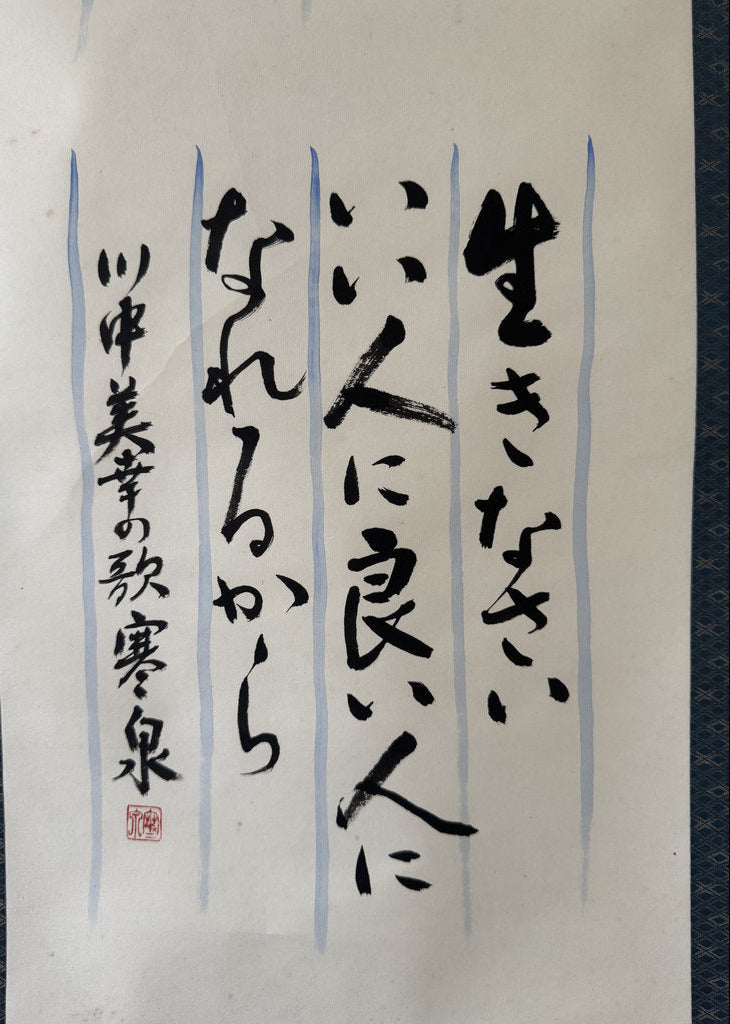 生きなさい
いい人に良い人に
なれるから
川中美幸の歌 寒泉
寒泉